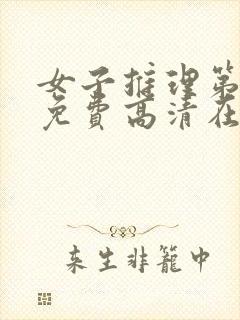 女子推理第
免费高清在
来生非笼中